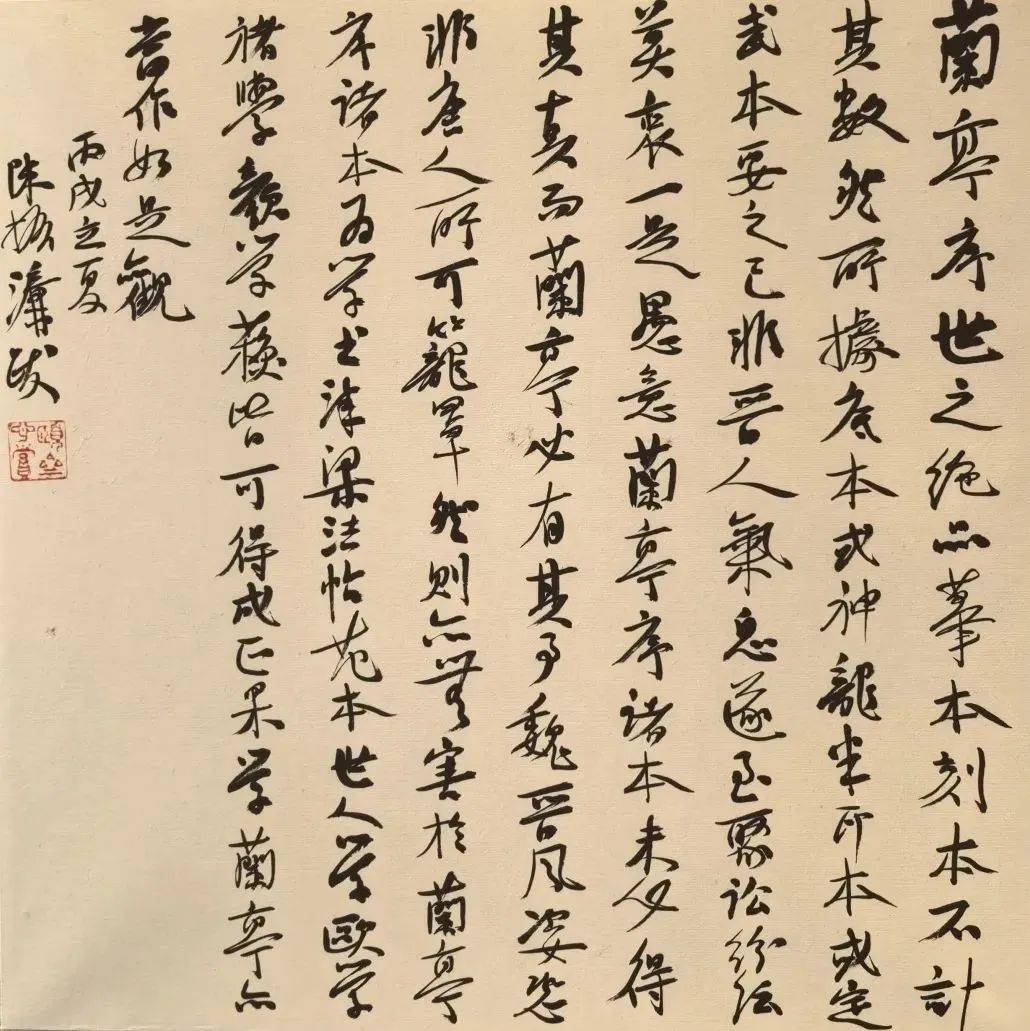 蘭亭序世之絶品摹本刻本不計
其數然所據底本或神龍半印本或定
武本要之已非晋人氣息遂至聚訟紛紜
莫衷一是愚意蘭亭序諸本未必得
其真而蘭亭必有其事魏晋風姿恐
非唐人所可籠罩然則亦無害於蘭亭
序諸本为学书津梁法帖范本世人学歐学
褚學顔学蘇皆可得成正果学蘭亭亦
当作如是觀
丙戌之夏
陳振濂